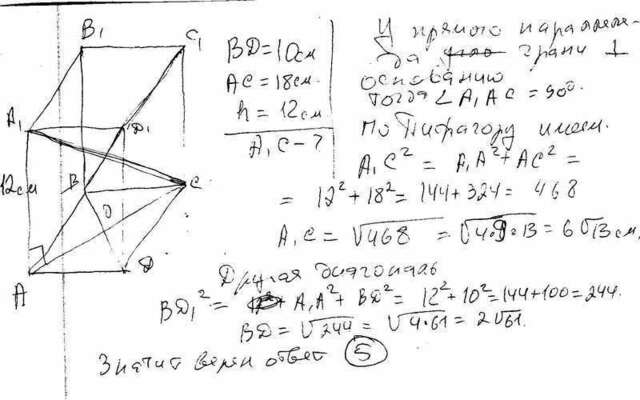 B₁
C₁
A₁
D₁
12см
B
C
O
A
D
BD = 10см
AC = 18см.
h = 12см
A₁C - ?
У прямого параллеле-
да грани ⊥
основанию
тогда ∠A₁AC = 90°.
По Пифагору имеем.
A₁C² = A₁A² + AC² =
= 12² + 18² = 144 + 324 = 468
A₁C = √468 = √4·9·13 = 6√13 см.
Другая диагональ
BD₁² = A₁A² + BD² = 12² + 10² = 144 + 100 = 244.
BD = √244 = √4·61 = 2√61.
Значит верен ответ 5